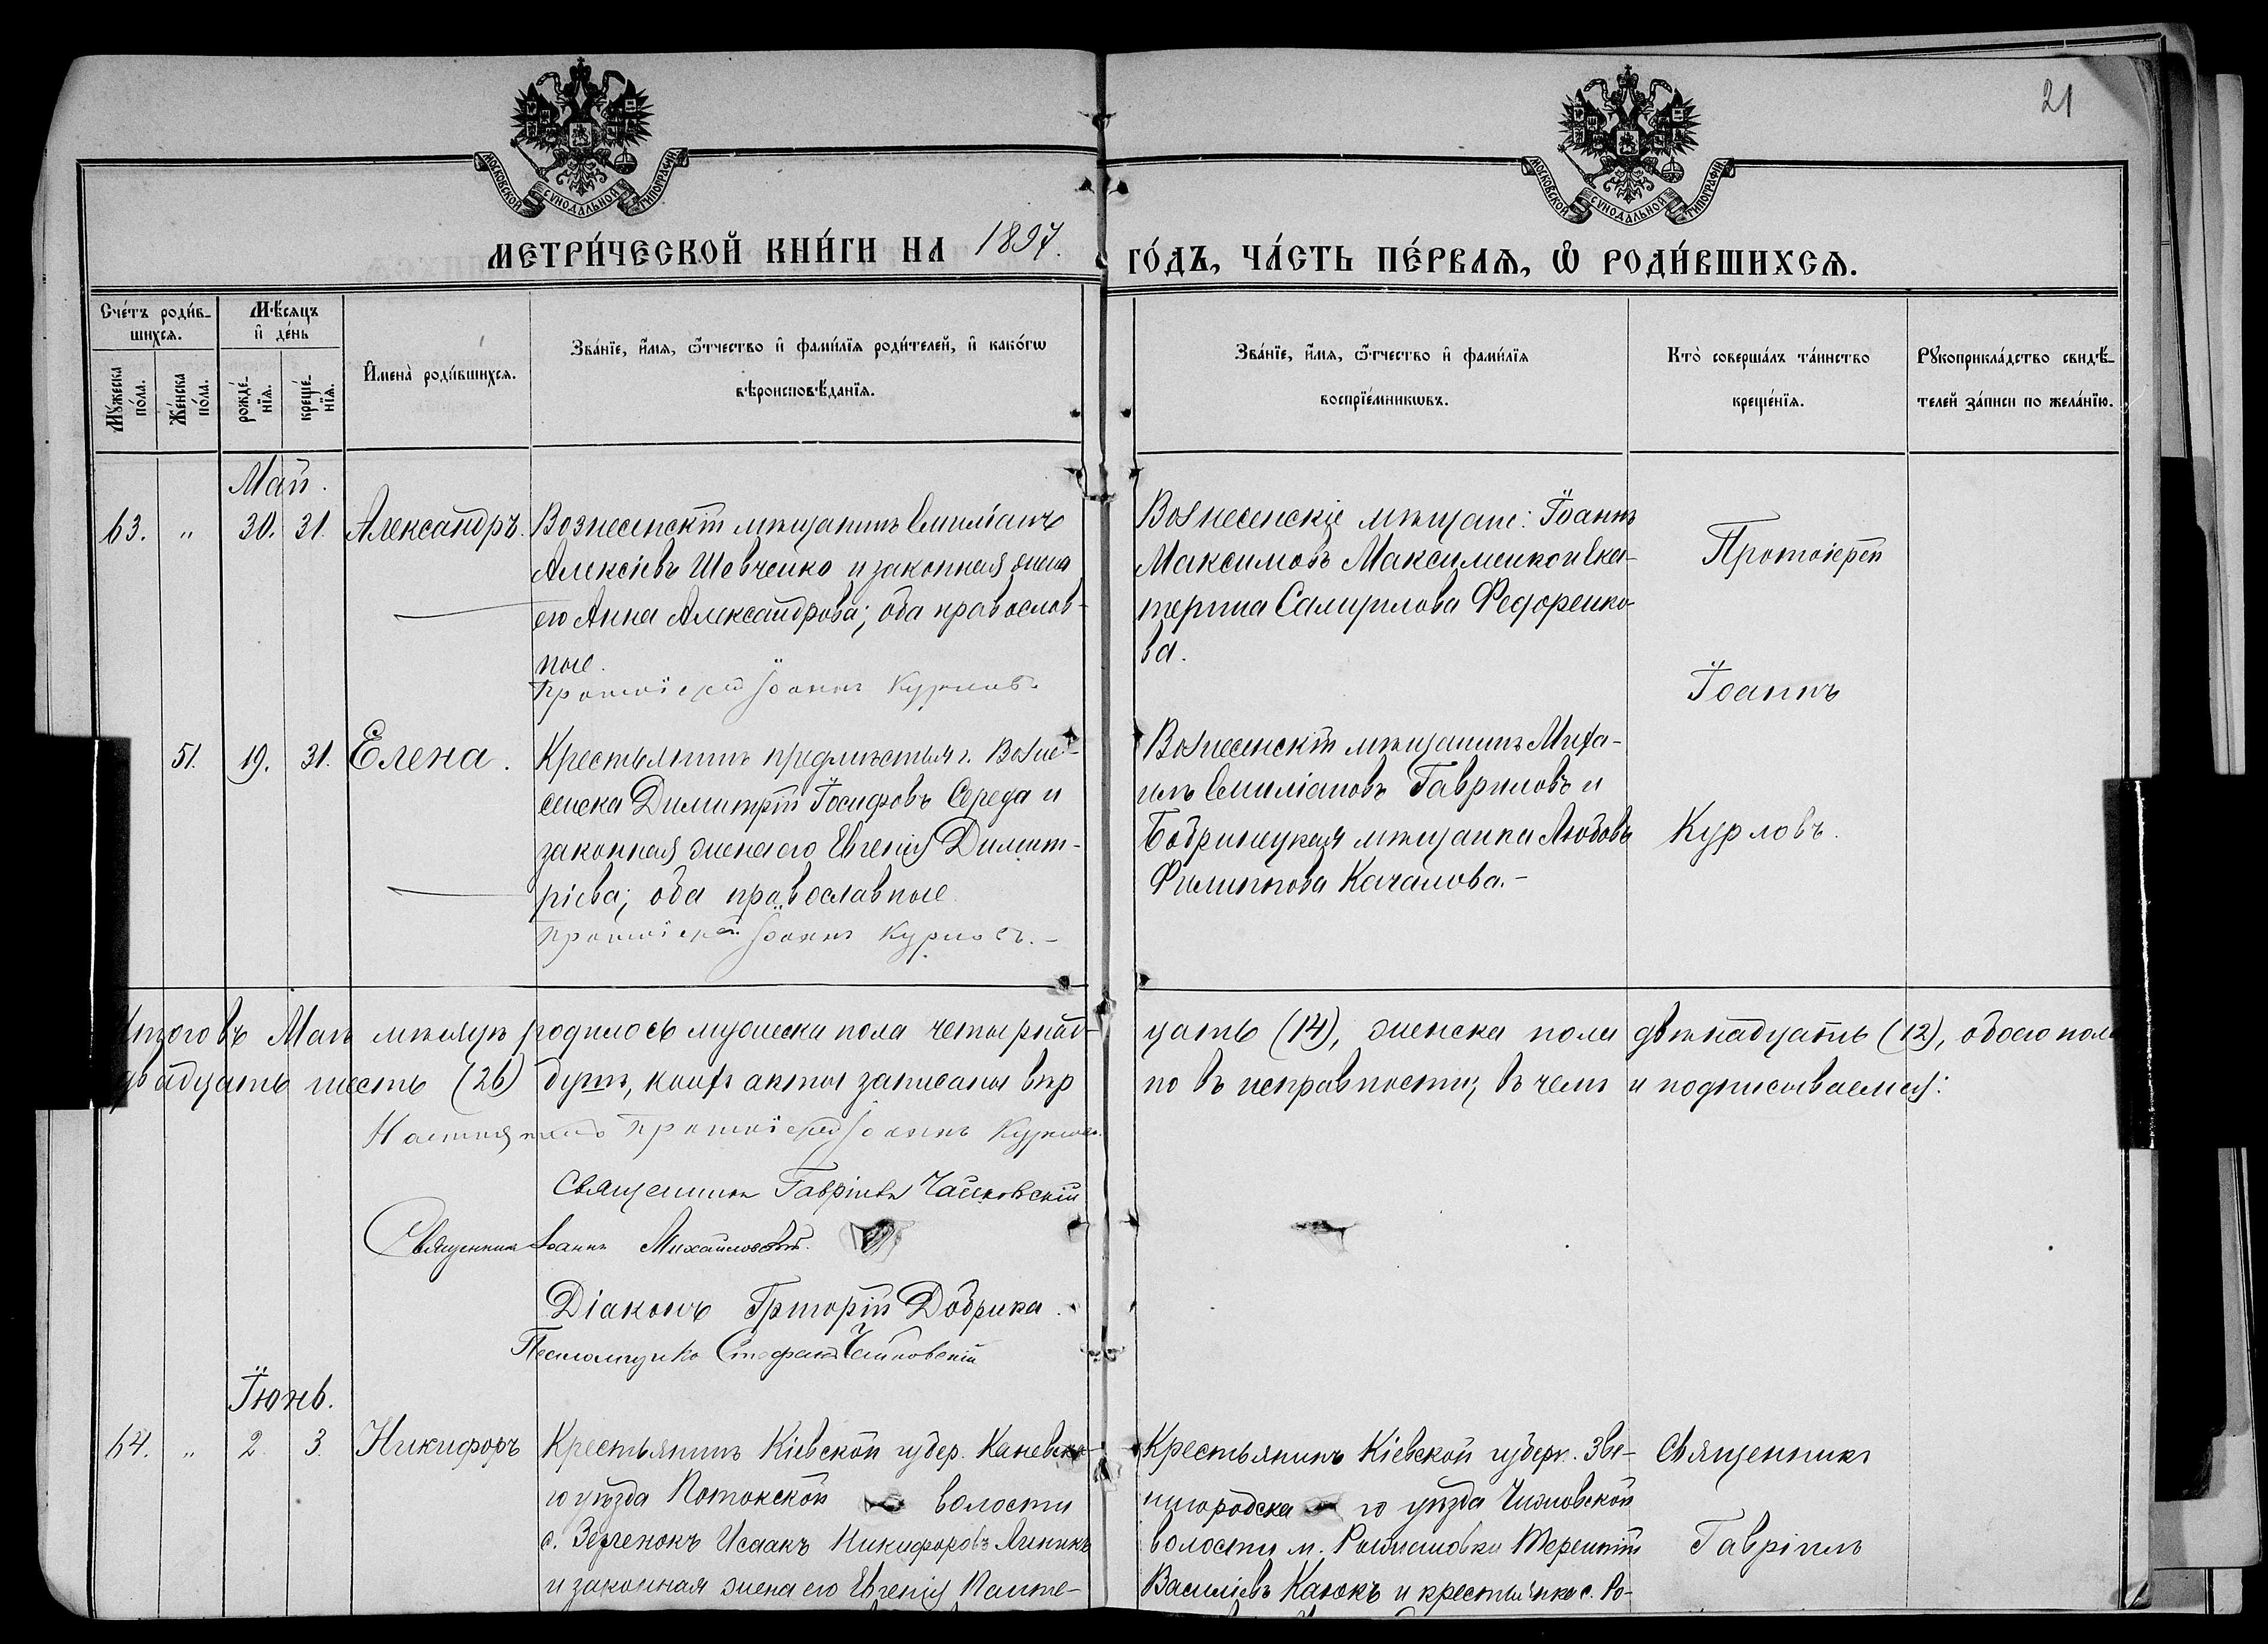 21
МОСКОВСКОЙ СУНОДАЛЬНОЙ ТИПОГРАФИИ
МОСКОВСКОЙ СУНОДАЛЬНОЙ ТИПОГРАФИИ
МЕТРИ́ЧЕСКОЙ КНИ́ГИ НА 1897.
ГО́ДЪ, ЧА́СТЬ ПЕ́РВАѦ, Ѡ҆ РОДИ́ВШИХСѦ.
Сче́тъ роди́в-
шихсѧ.
Мѣ́сяцъ
и҆ де́нь
Мꙋ́жеска
по́ла.
Же́нска
по́ла.
рожде́-
нїѧ.
креще́-
нїѧ.
И҆мена̀ роди́вшихсѧ.
Зва́нїе, и҆́мѧ, ѻ҆́тчество и҆ фами́лїѧ роди́телей, и҆ како́гѡ
вѣроисповѣ́данїѧ.
Зва́нїе, и҆́мѧ, ѻ҆́тчество и҆ фами́лїѧ
воспрїе́мникѡвъ.
Кто̀ соверша́лъ та́инство
креще́нїѧ.
Рꙋкоприкла́дство свидѣ́-
телей за́писи по жела́нїю.
Май.
63. " 30. 31. Александръ.
Вознесенскій мѣщанинъ Емиліанъ
Алексіевъ Шевченко и законная жена
его Анна Александрова; оба православ-
ные.
Протоіерей Іоаннъ Курловъ
Вознесенскіе мѣщане: Іоаннъ
Максимовъ Максименко и Ека-
терина Самуилова Федоренко-
ва.
Протоіерей
Іоаннъ
Курловъ.
51. 19. 31. Елена.
Крестьянинъ предмѣстья г. Возне-
сенска Димитрій Іосифовъ Середа и
законная жена его Евгенія Димит-
ріева; оба православные
Протоіерей Іоаннъ Курловъ.-
Вознесенскій мѣщанинъ Миха-
илъ Емиліановъ Гавриловъ и
Бобринецкая мѣщанка Любовь
Филиппова Качалова.-
Итого въ Маѣ мѣсяцѣ родилось мужеска пола четырнад-
цать (14), женска пола двѣнадцать (12), обоего пола
двадцать шесть (26) душъ, коихъ акты записаны вѣр
но въ исправности; въ чемъ и подписываемся:
Настоятель Протоіерей Іоаннъ Курловъ.
Священникъ Гавріилъ Чайковскій
Священникъ Іоаннъ Михайловскій.
Діаконъ Григорій Добрика.
Псаломщикъ Стефанъ Чайковскій
Іюнь.
64. " 2. 3. Никифоръ
Крестьянинъ Кіевской губер. Каневска-
го уѣзда Потокской волости
с. Исаакъ Никифоровъ
и законная жена его Евгенія Панте-
Крестьянинъ Кіевской губерн. Зве-
нигородска го уѣзда Чижовской
волости м. Терентій
Василіевъ Каюкъ и крестьянка с. Ро-
Священникъ
Гавріилъ